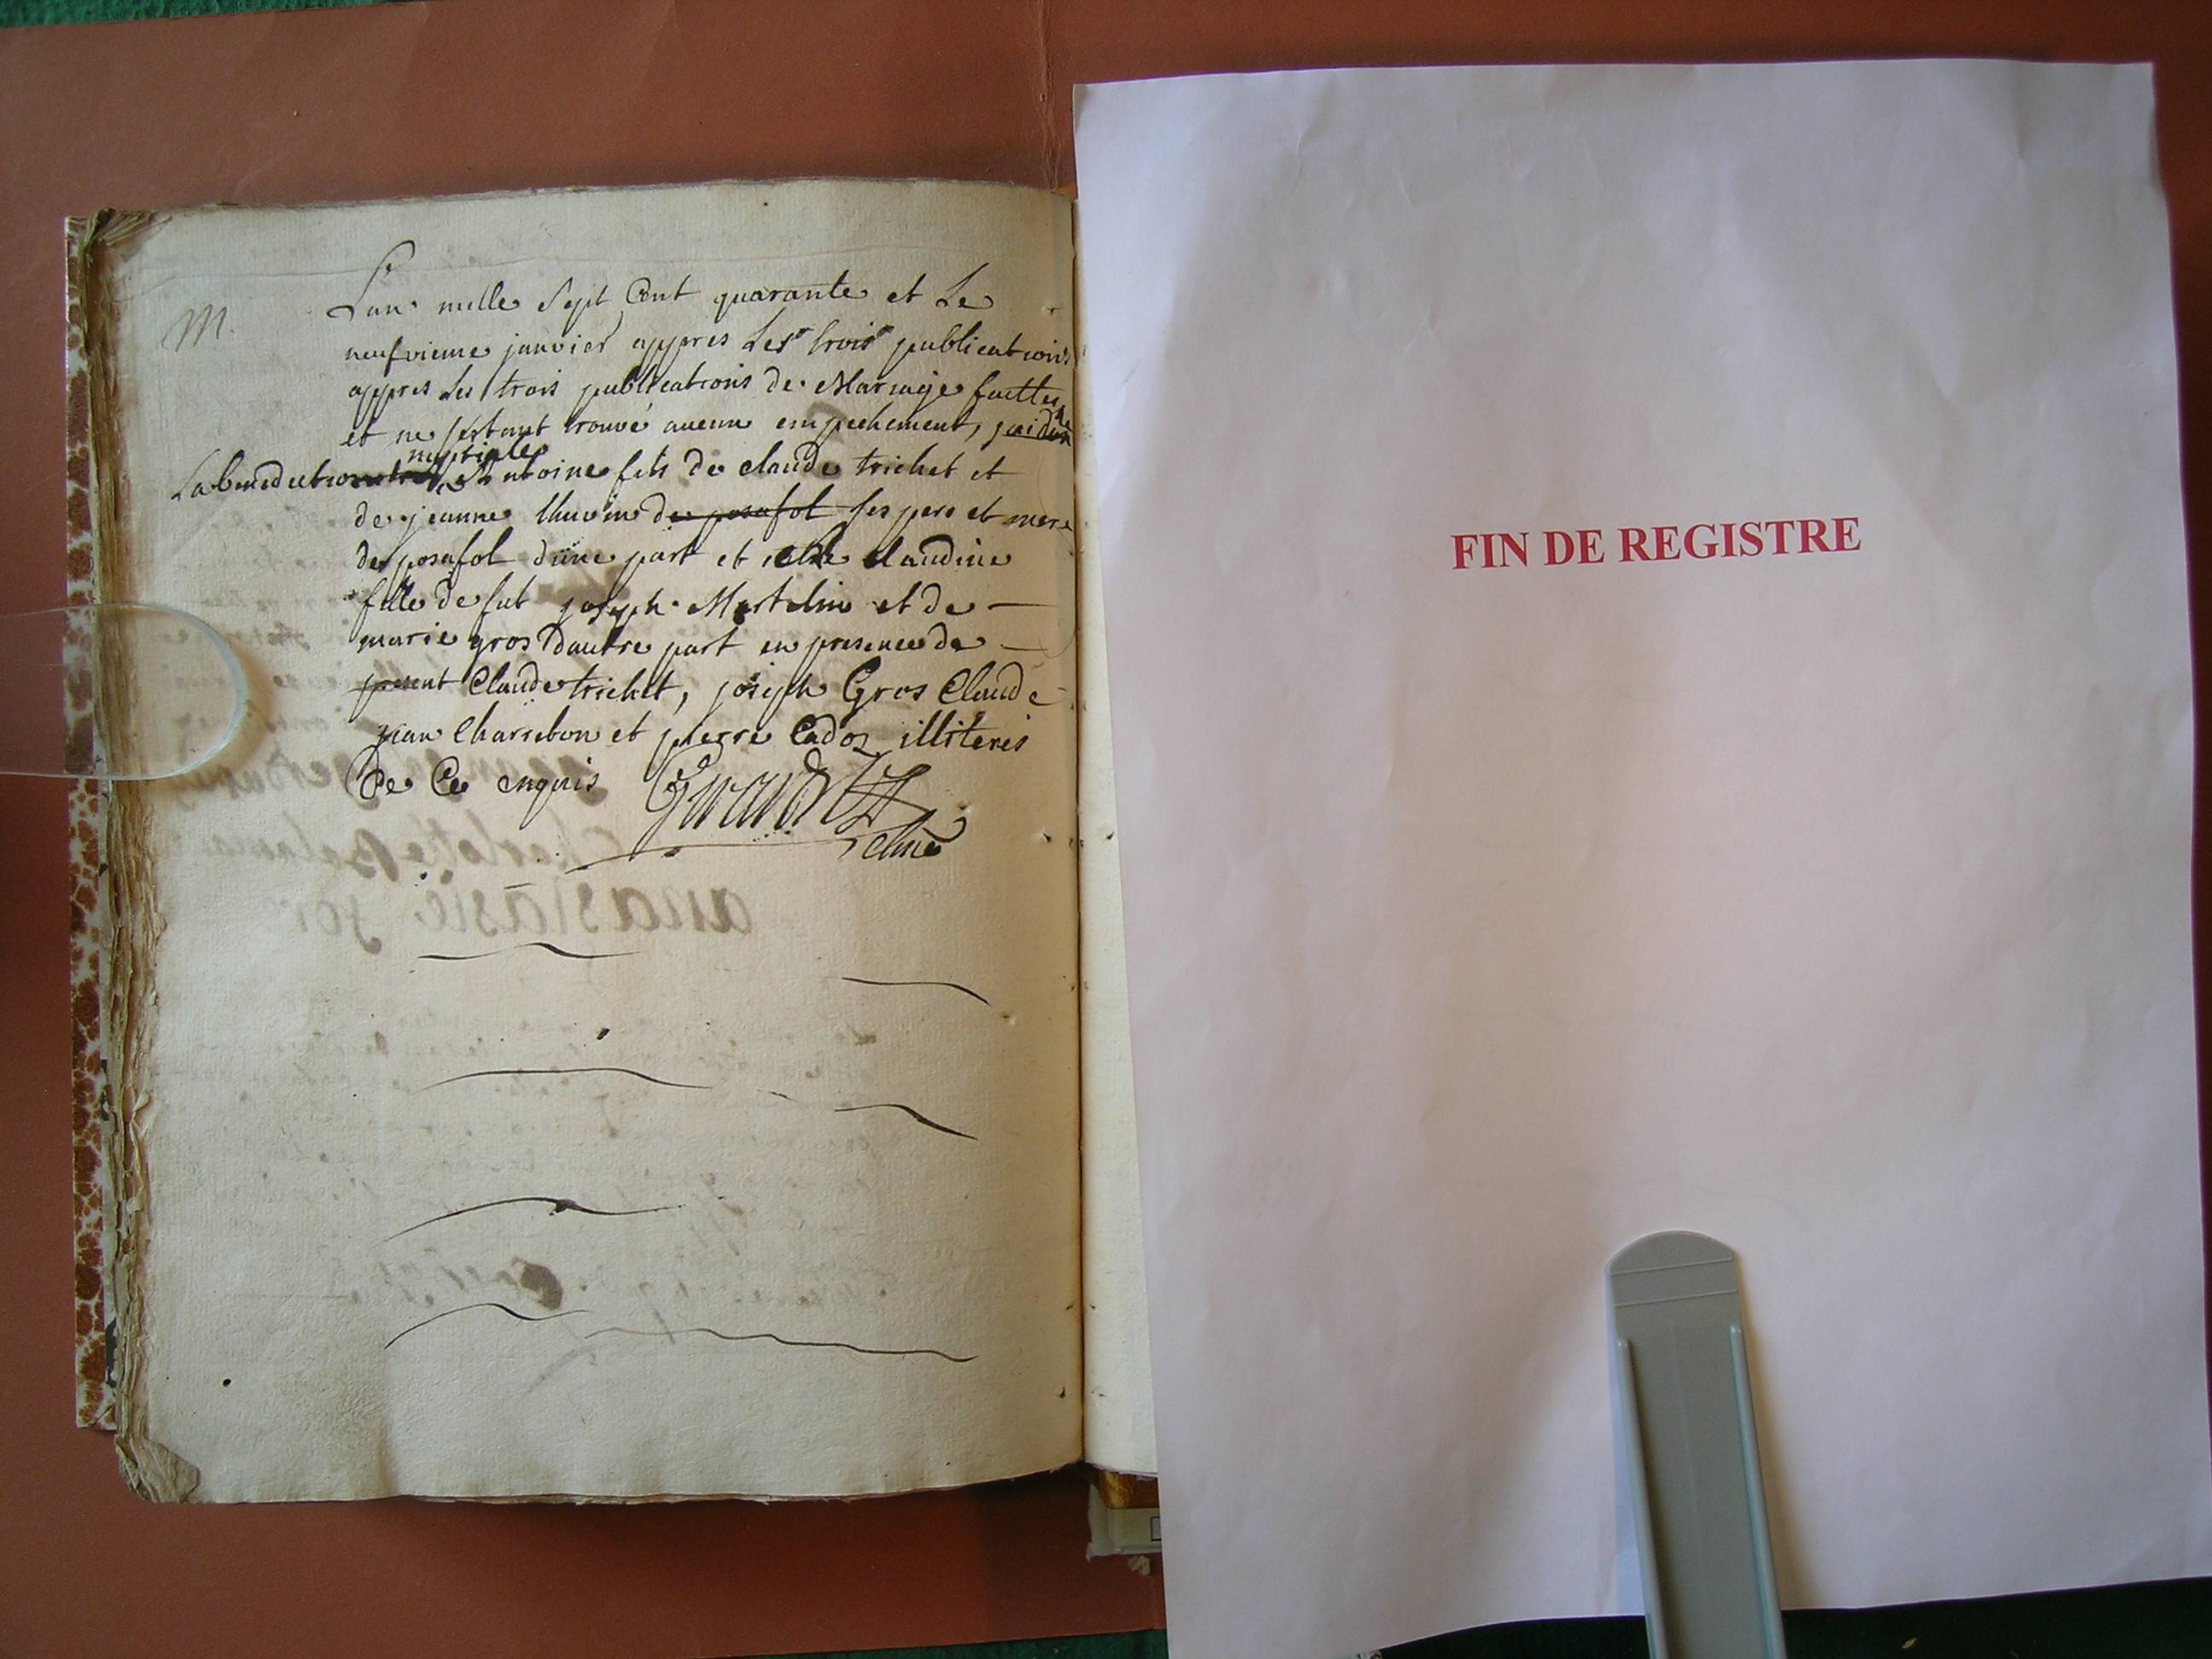 M.
Lan mille Sept Cent quarante et Le
neufvieme janvier appres Les trois publications
appres Les trois publications de Mariage faittes
et ne sestant trouvé aucun empechement, jai donné
La benediction nuptiale a Antoine fils de claude trichet et
de jeanne thuvin de posafol ses pere et mere
de posafol dune part et claudine
fille de fut joseph Martelin et de
marie gros dautre part en presence de
present Claude trichet, joseph Gros Claude
jean Charreton et pierre Cadoz illiterés
de Ce enquis Girardet
FIN DE REGISTRE